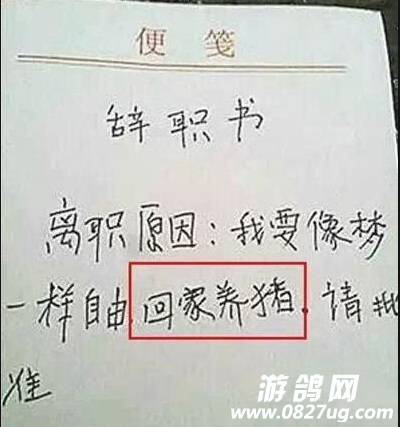 便笺
辞职书
离职原因：我要像梦
一样自由.回家养猪.请批
准
游鸽网
www.0827ug.com